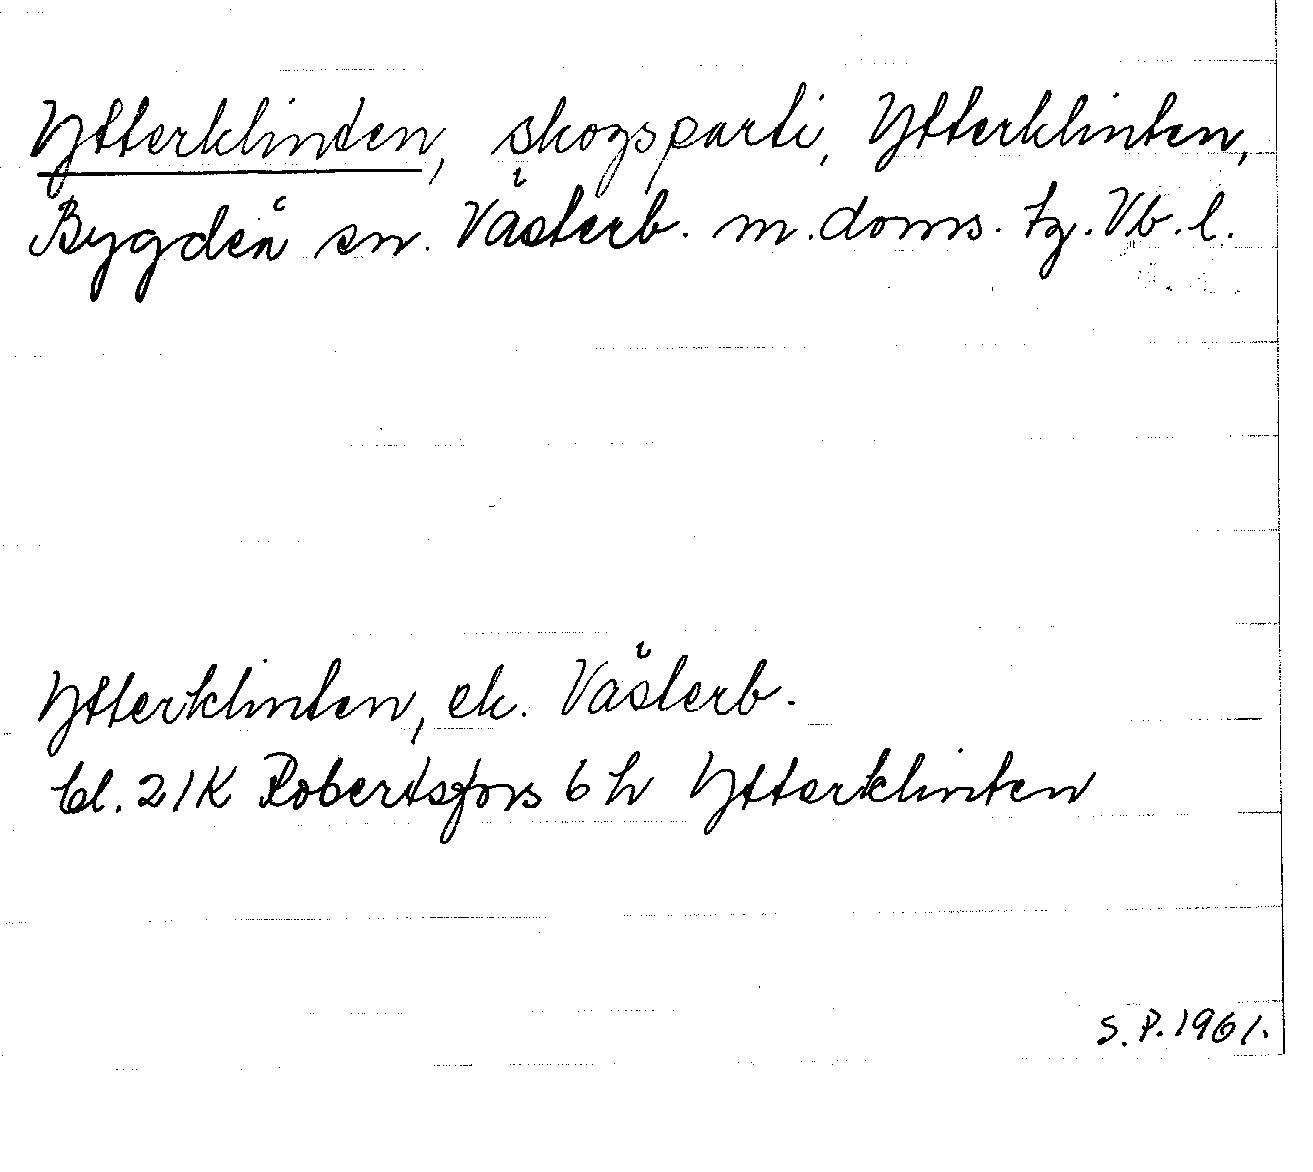 Ytterklinten, skogsparti, Ytterklinten,
Bygdeå sn. Västerb. m. doms. tg. Vb. l.
Ytterklinten, ek. Västerb.
bl. 21K Robertsfors 6 h Ytterklinten
S. P. 1961.